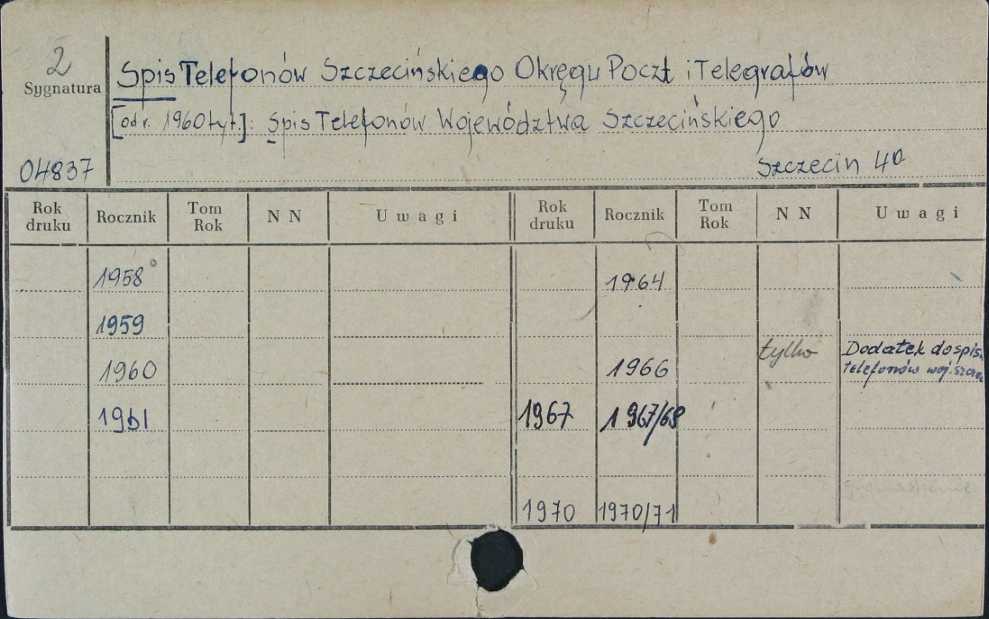 2
Sygnatura
Spis Telefonów Szczecińskiego Okręgu Poczt i Telegrafów
[od r. 1960 tyt.]: Spis Telefonów Województwa Szczecińskiego
04837
Szczecin 4°
Rok druku Rocznik Tom Rok N N Uwagi Rok druku Rocznik Tom Rok N N Uwagi
1958 1964
1959
1960 1966 tylko Dodatek do spis. telefonów woj. szcze
1961 1967 1967/68
1970 1970/71